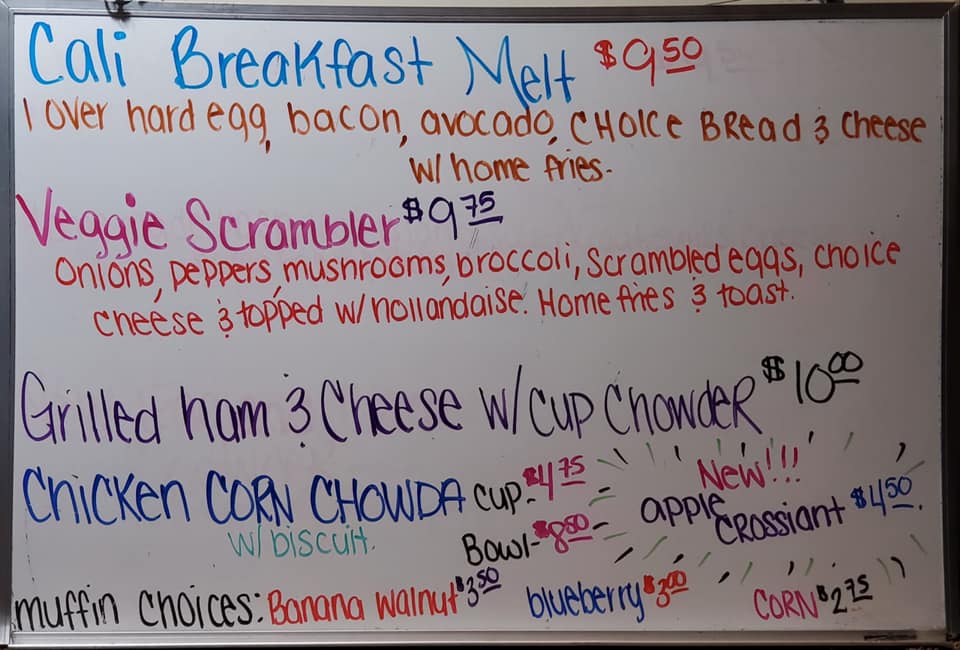 Cali Breakfast Melt $9.50
1 over hard egg, bacon, avocado, CHOICE BREAD & cheese
w/ home fries-
Veggie Scrambler $9.75
Onions, peppers, mushrooms, broccoli, scrambled eggs, choice
cheese & topped w/ hollandaise. Home fries & toast.
Grilled ham & Cheese w/ cup Chowder $10.00
Chicken CORN CHOWDA cup- $4.75
w/ biscuit.
Bowl- $8.50
New!!!
apple
Crossiant $4.50.
muffin choices: Banana walnut $3.50 blueberry $3.00 CORN $2.75